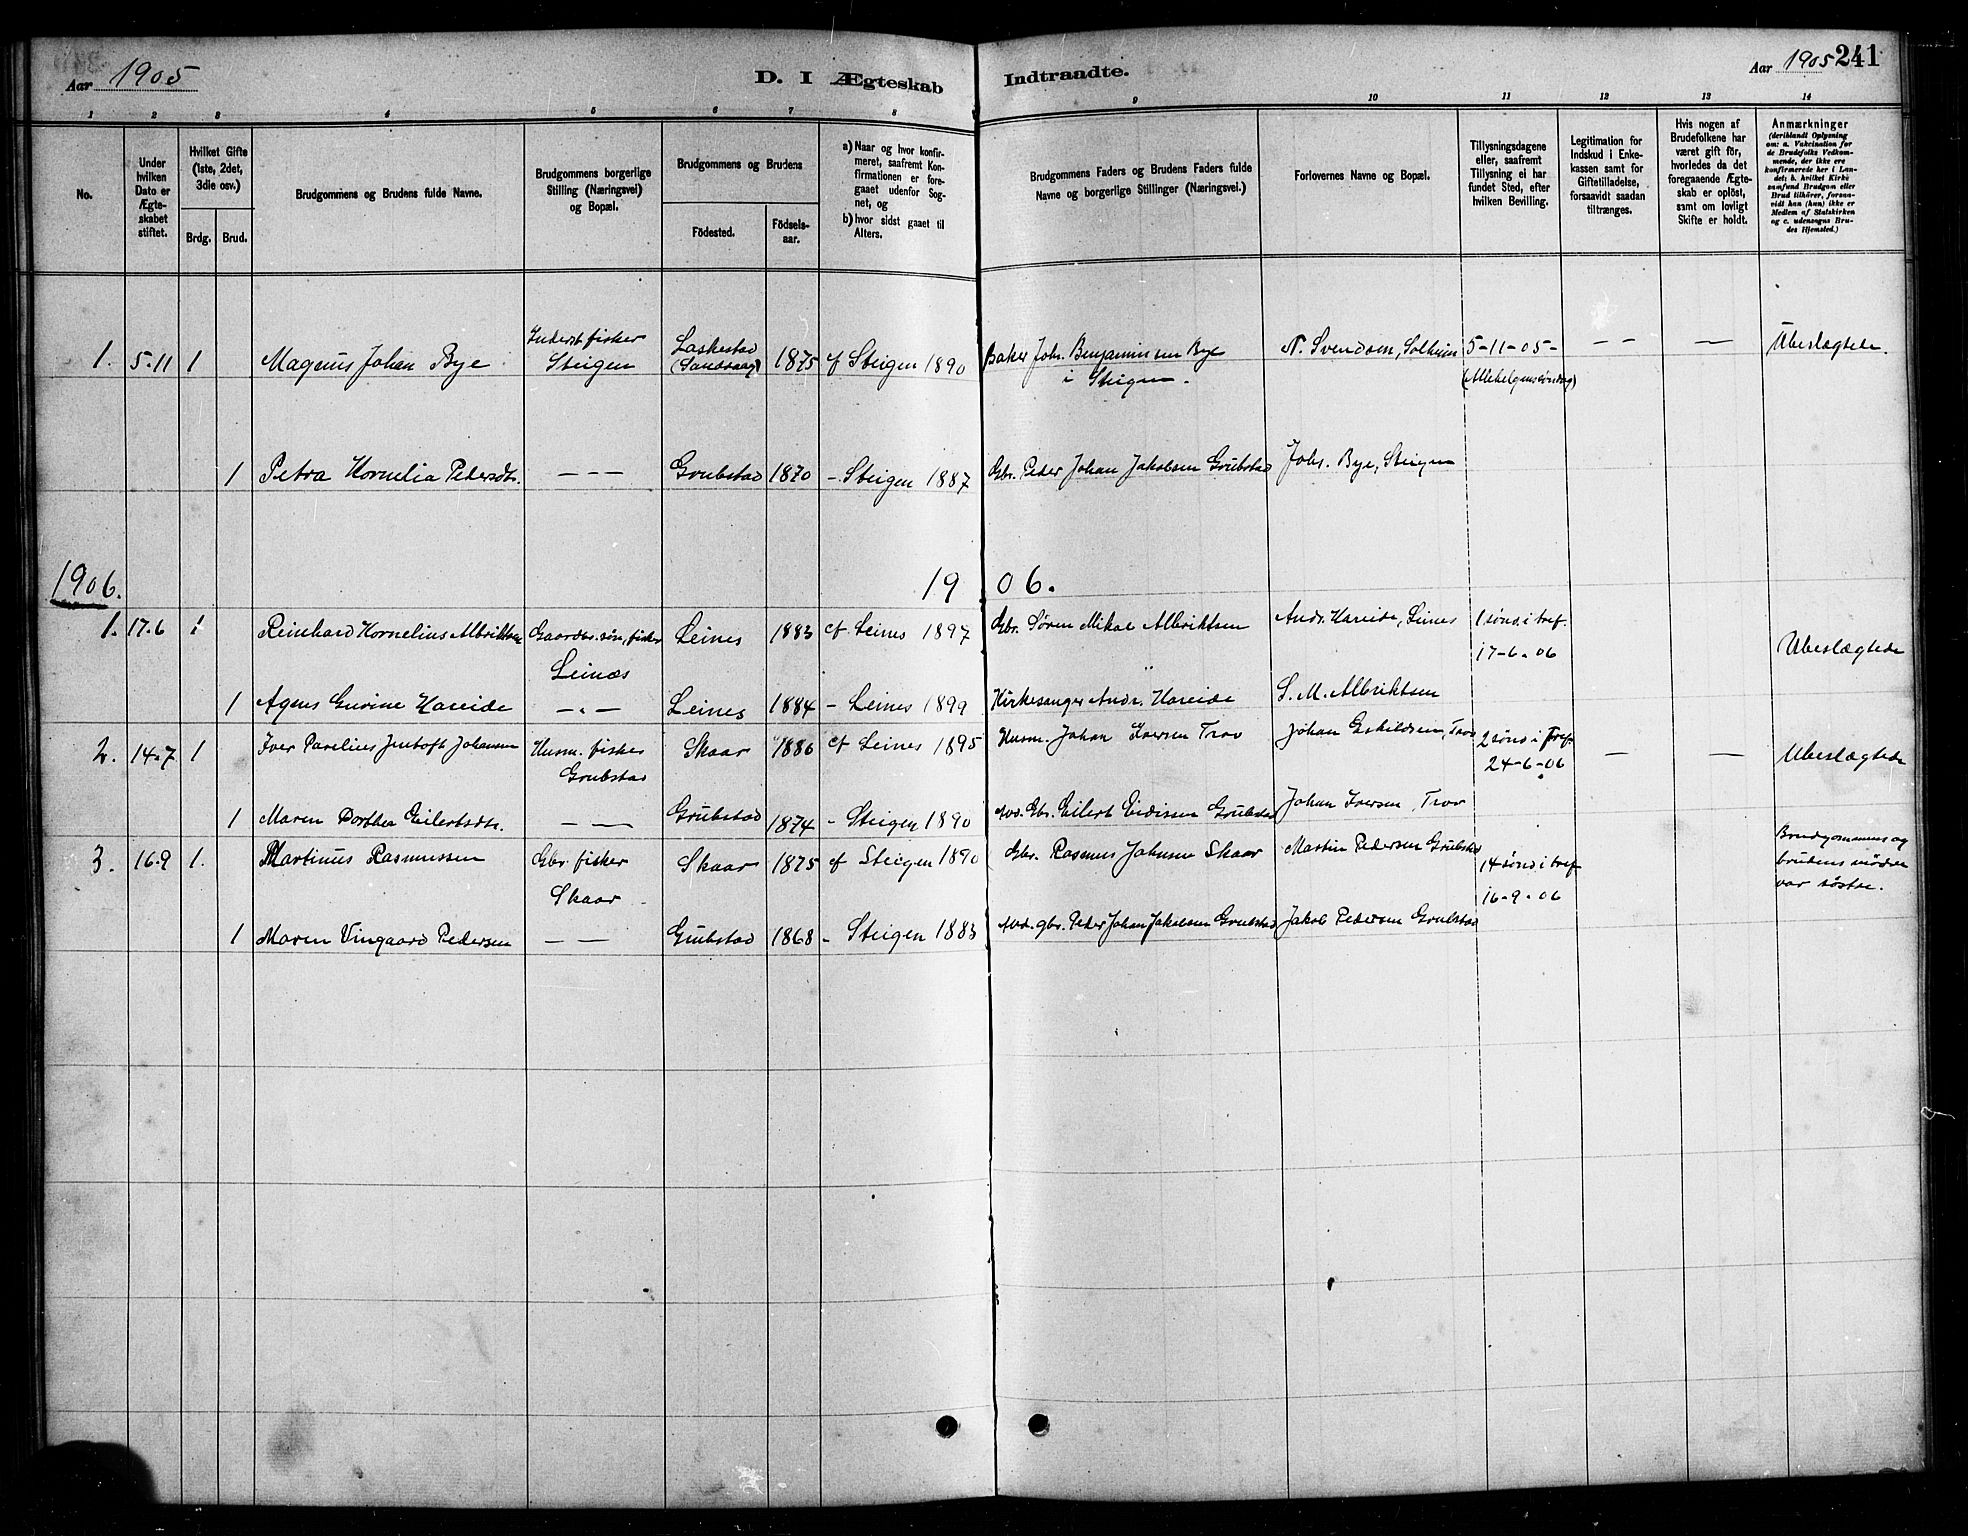 Aar 1905
D. I Ægteskab Indtraadte.
Aar 1905 241
1 2 3 4 5 6 7 8 9 10 11 12 13 14
No.
Under hvilken Dato er Ægteskabet stiftet.
Hvilket Gifte (1ste, 2det, 3die osv.)
Brdg. Brud.
Brudgommens og Brudens fulde Navne.
Brudgommens borgerlige Stilling (Næringsvei) og Bopæl.
Brudgommens og Brudens
Födested. Födsels-aar.
a) Naar og hvor konfirmeret, saafremt Konfirmationen er foregaaet udenfor Sognet, og
b) hvor sidst gaaet til Alters.
Brudgommens Faders og Brudens Faders fulde Navne og borgerlige Stillinger (Næringsvei.)
Forlovernes Navne og Bopæl.
Tillysningsdagene eller, saafremt Tillysning ei har fundet Sted, efter hvilken Bevilling.
Legitimation for Indskud i Enkekassen samt for Giftetilladelse, forsaavidt saadan tiltrænges.
Hvis nogen af Brudefolkene har været gift för, hvorledes da det foregaaende Ægteskab er oplöst, samt om lovligt Skifte er holdt.
Anmærkninger (deriblandt Oplysning om: a. Vakcination for de Brudefolks Vedkommende, der ikke ere konfirmerede her i Landet; b. hvilket Kirkesamfund Brudgom eller Brud tilhörer, forsaavidt han (hun) ikke er Medlem af Statskirken og c. udensogns Brudes Hjemsted.)
1. 5-11 1 Magnus Johan Bye Inderst fisker Steigen Laskestad 1875 cf Steigen 1890 Baker Joh. Benjaminsen Bye i Steigen. N. Svendsen, Solheim 5-11-05- (Allehelgenssöndag) – – — Ubeslægtede.
1 Petra Kornelia Pedersdtr. – – – Grubstad 1870 – Steigen 1887 Gbr. Peder Johan Jakobsen Grubstad Johs. Bye, Steigen
1906. 1906.
1. 17-6 1 Reinhard Kornelius Albriktsen Gaardbr. sön, fisker Leines Leines 1883 cf Leines 1897 Gbr. Sören Mikal Albriktsen Andr. Hareide, Leines 1 sönd. i tref. 17-6-06 Ubeslægtede
1 Agnes Gurine Hareide – „ – Leines 1884 – Leines 1899 Kirkesanger Andr. Hareide S. M. Albriktsen
2. 14-7 1 Iver Parelius Jentoft Johansen Husm. fisker Grubstad Skaar 1886 cf Leines 1895 Husm. Johan Iversen Trov Johan Eskildsen, Trov 2 sönd i tref. 24-6-06 – — Ubeslægtede
1 Maren Dorthea Eilertsdtr. – — Grubstad 1874 – Steigen 1890 Avd. Gbr. Eilert Eidissen Grubstad Johan Iversen, Trov
3. 16-9 1. Martinus Rasmussen Gbr. fisker Skaar Skaar 1875 cf Steigen 1890 Gbr. Rasmus Johnsen Skaar Martin Pedersen Grubstad 14 sönd i tref 16-9-06 Brudgommens og brudens mödre var söstre.
1 Maren Vingaard Pedersen – — Grubstad 1868 – Steigen 1883 Avd. gbr. Peder Johan Jakobsen Grubstad Jakob Pedersen Grubstad